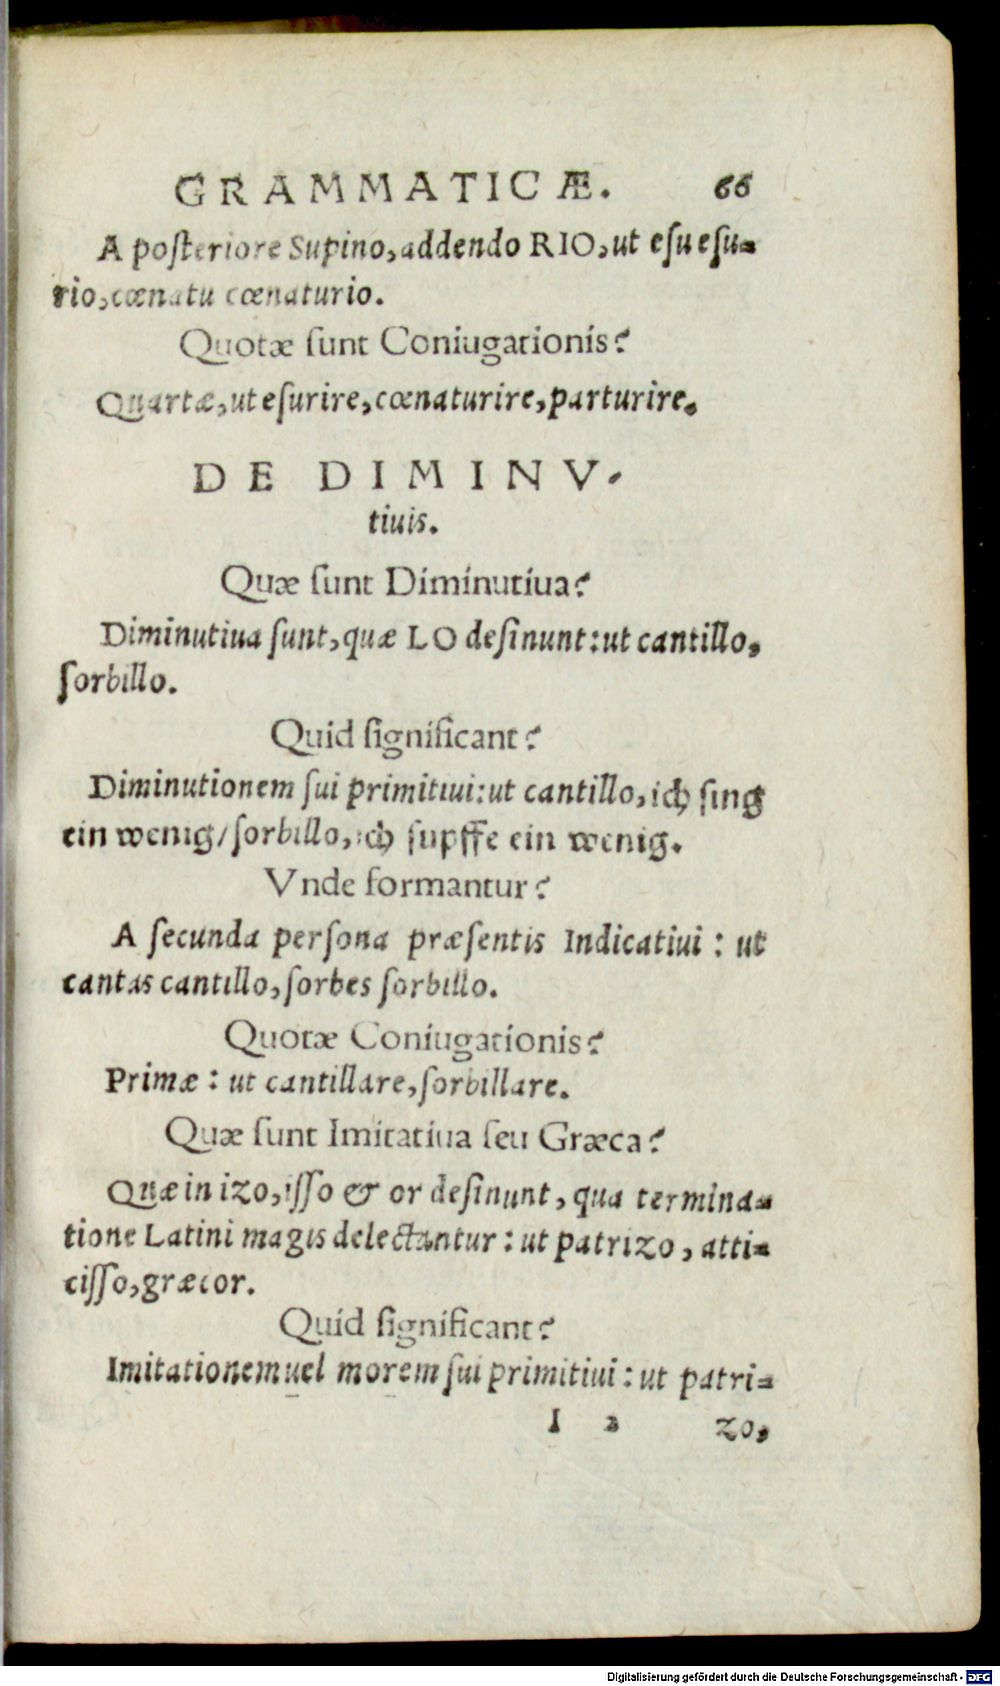 GRAMMATICÆ. 66
A poſteriore Supino, addendo RIO, ut eſu eſu-
rio, cœnatu cœnaturio.
Quotæ ſunt Coniugationis?
Quartæ, ut eſurire, cœnaturire, parturire.
DE DIMINV-
tiuis.
Quæ ſunt Diminutiua?
Diminutiua ſunt, quæ LO deſinunt: ut cantillo,
ſorbillo.
Quid ſignificant?
Diminutionem ſui primitiui: ut cantillo, ich ſing
ein wenig/ ſorbillo, ich ſupffe ein wenig.
Vnde formantur?
A ſecunda perſona præſentis Indicatiui: ut
cantas cantillo, ſorbes ſorbillo.
Quotæ Coniugationis?
Primæ: ut cantillare, ſorbillare.
Quæ ſunt Imitatiua ſeu Græca?
Quæ in izo, iſſo & or deſinunt, qua termina-
tione Latini magis delectantur: ut patrizo, atti-
ciſſo, græcor.
Quid ſignificant?
Imitationem uel morem ſui primitiui: ut patri-
I 2 zo,
Digitalisierung gefördert durch die Deutsche Forschungsgemeinschaft - DFG